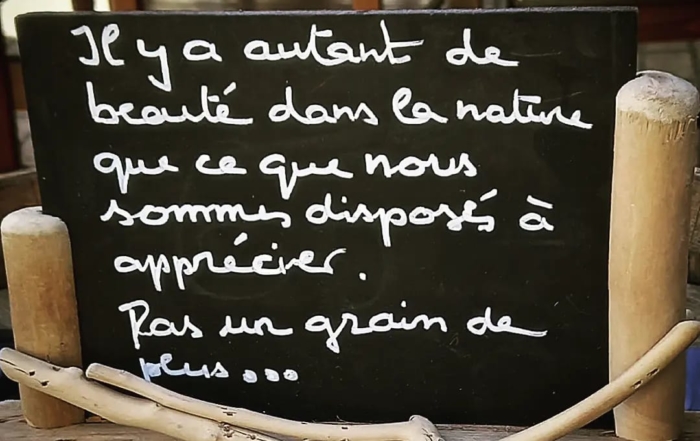 Il y a autant de
beauté dans la nature
que ce que nous
sommes disposés à
apprécier.
Pas un grain de
plus...